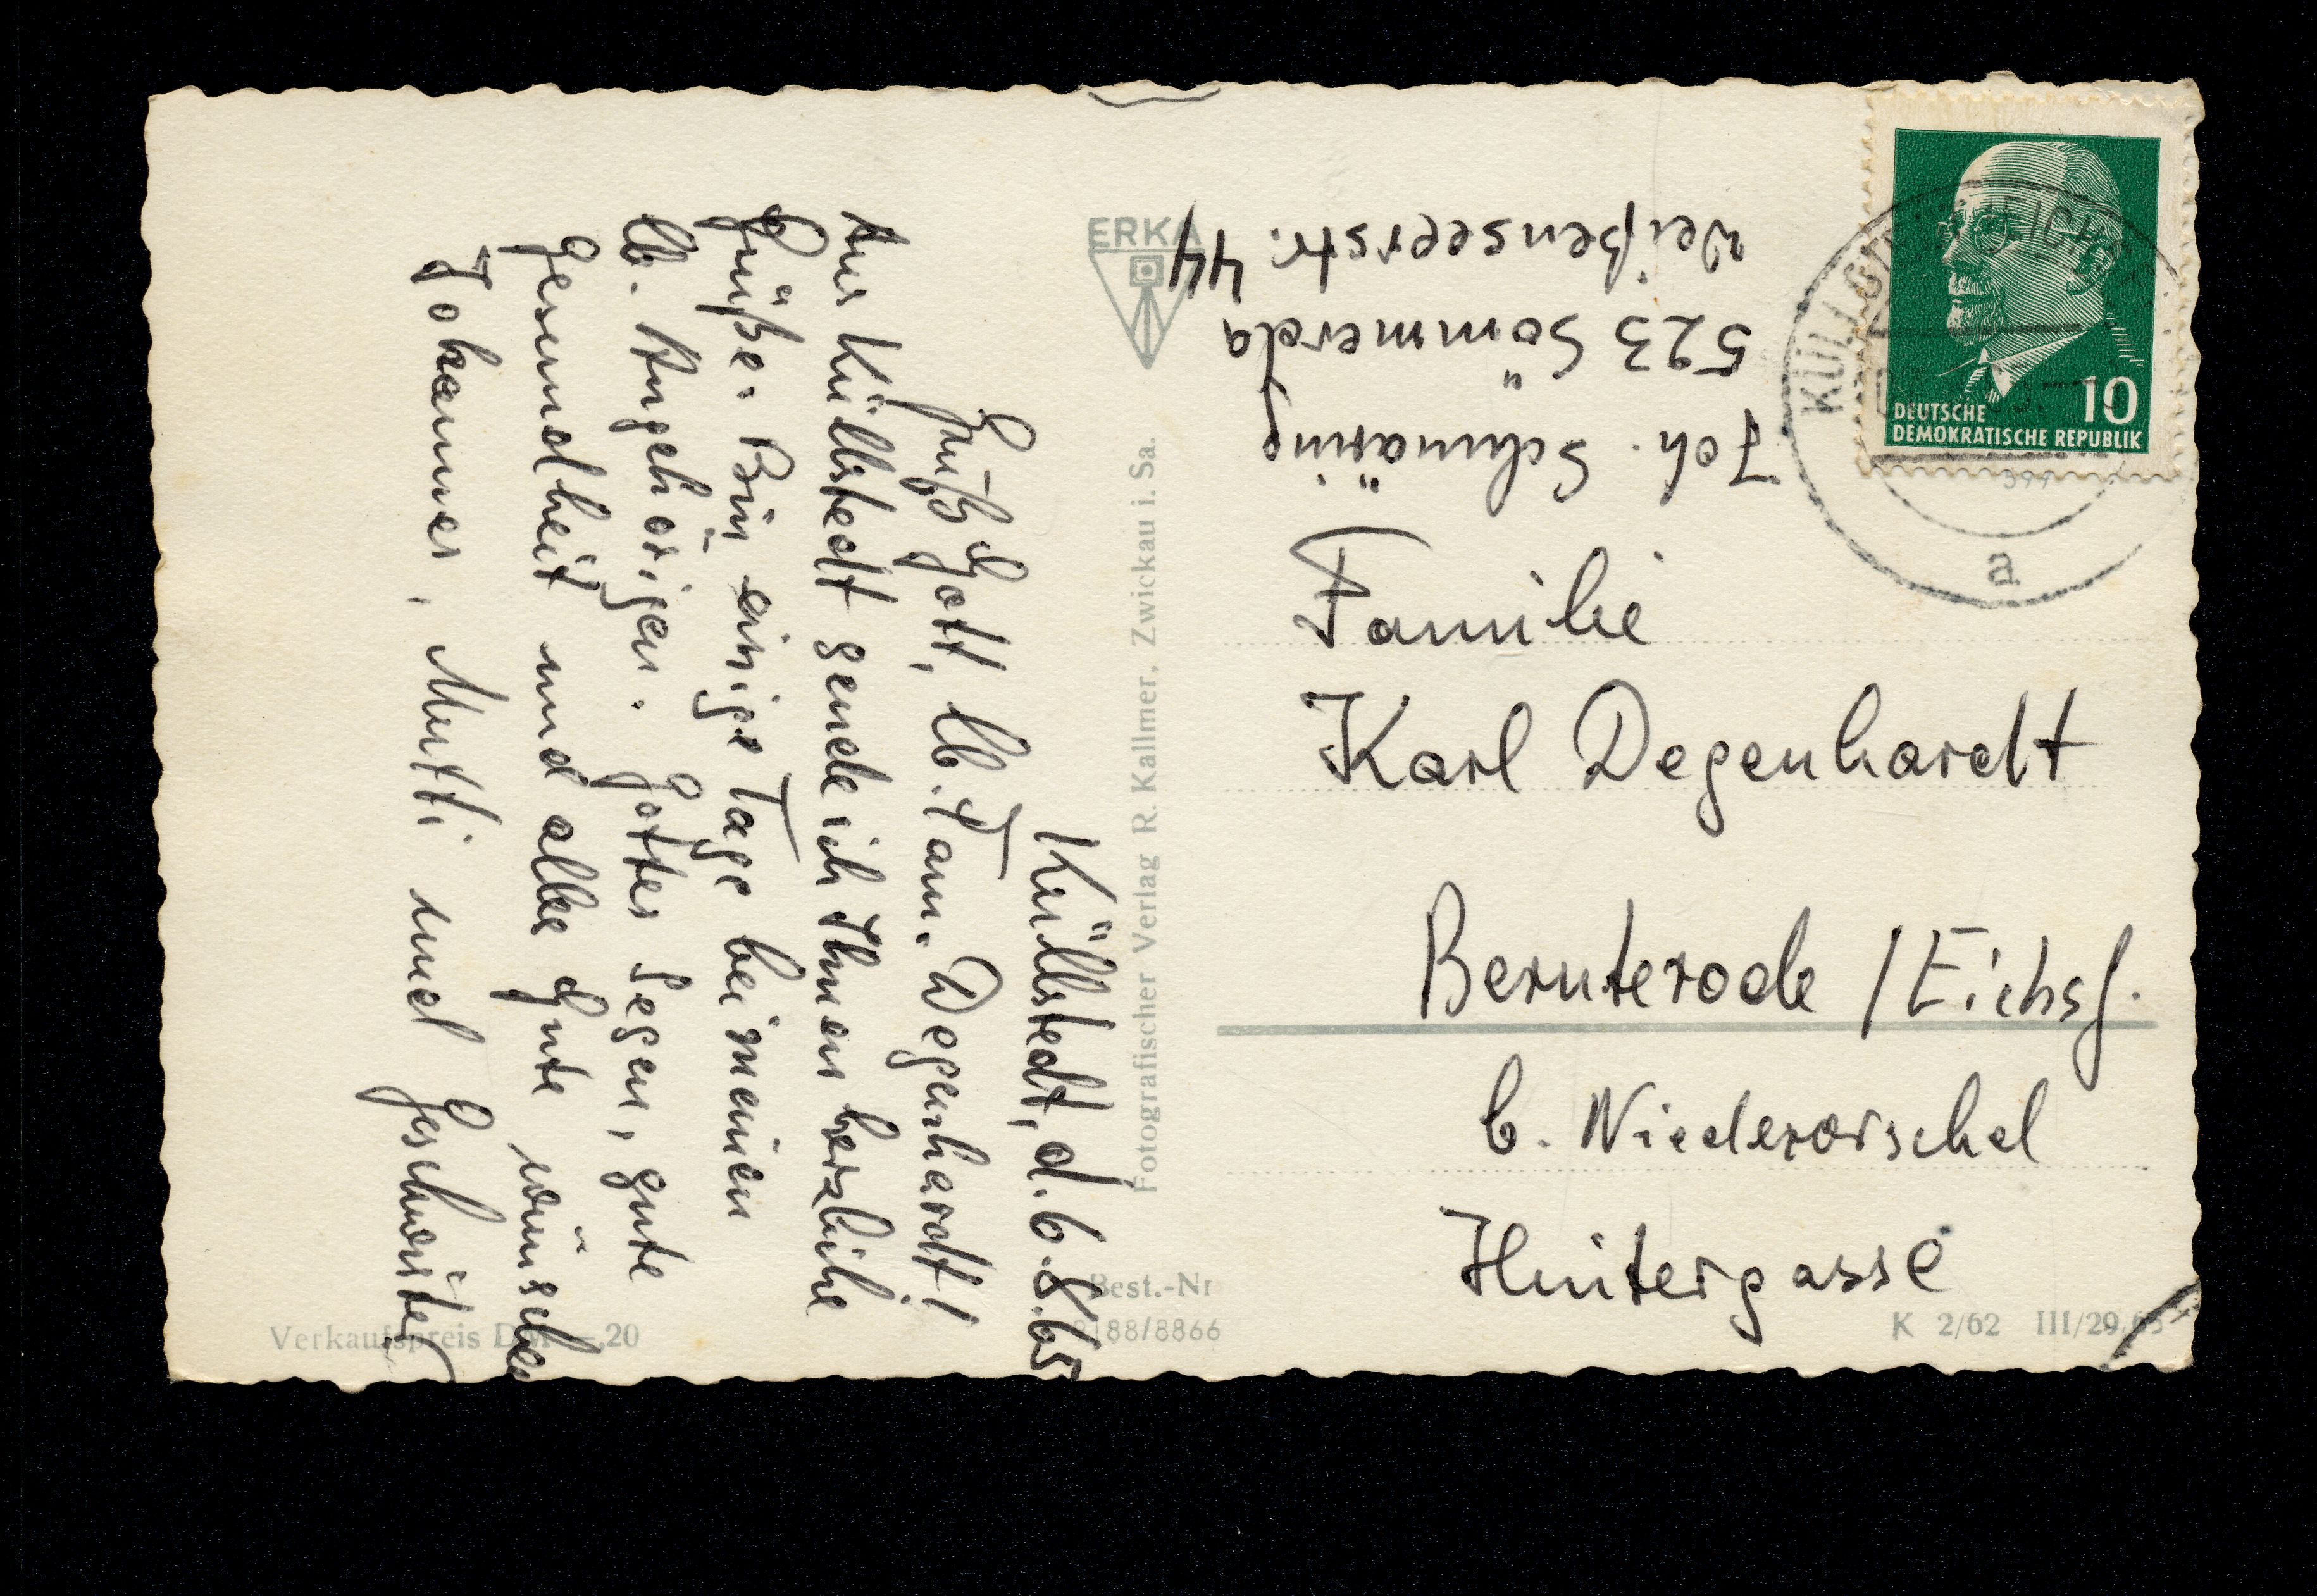 Küllstedt, d. 6.8.65
Grüß Gott, lb. Fam. Degenhardt!
Aus Küllstedt sende ich Ihnen herzliche
Grüße. Bin einige Tage bei meinen
lb. Angehörigen. Gottes Segen, gute
Gesundheit und alles Gute wünschen
Johannes, Mutti und Geschwister
ERKA
Fotografischer Verlag R. Kallmer, Zwickau i. Sa.
Best.-Nr
8188/8866
Verkaufspreis DM -,20
Joh. Schwäring
523 Sömmerda
Weißenseerstr. 44
DEUTSCHE
DEMOKRATISCHE REPUBLIK
10
a
Familie
Karl Degenhardt
Bernterode / Eichsf.
b. Niederorschel
Hintergasse
K 2/62 III/29/65